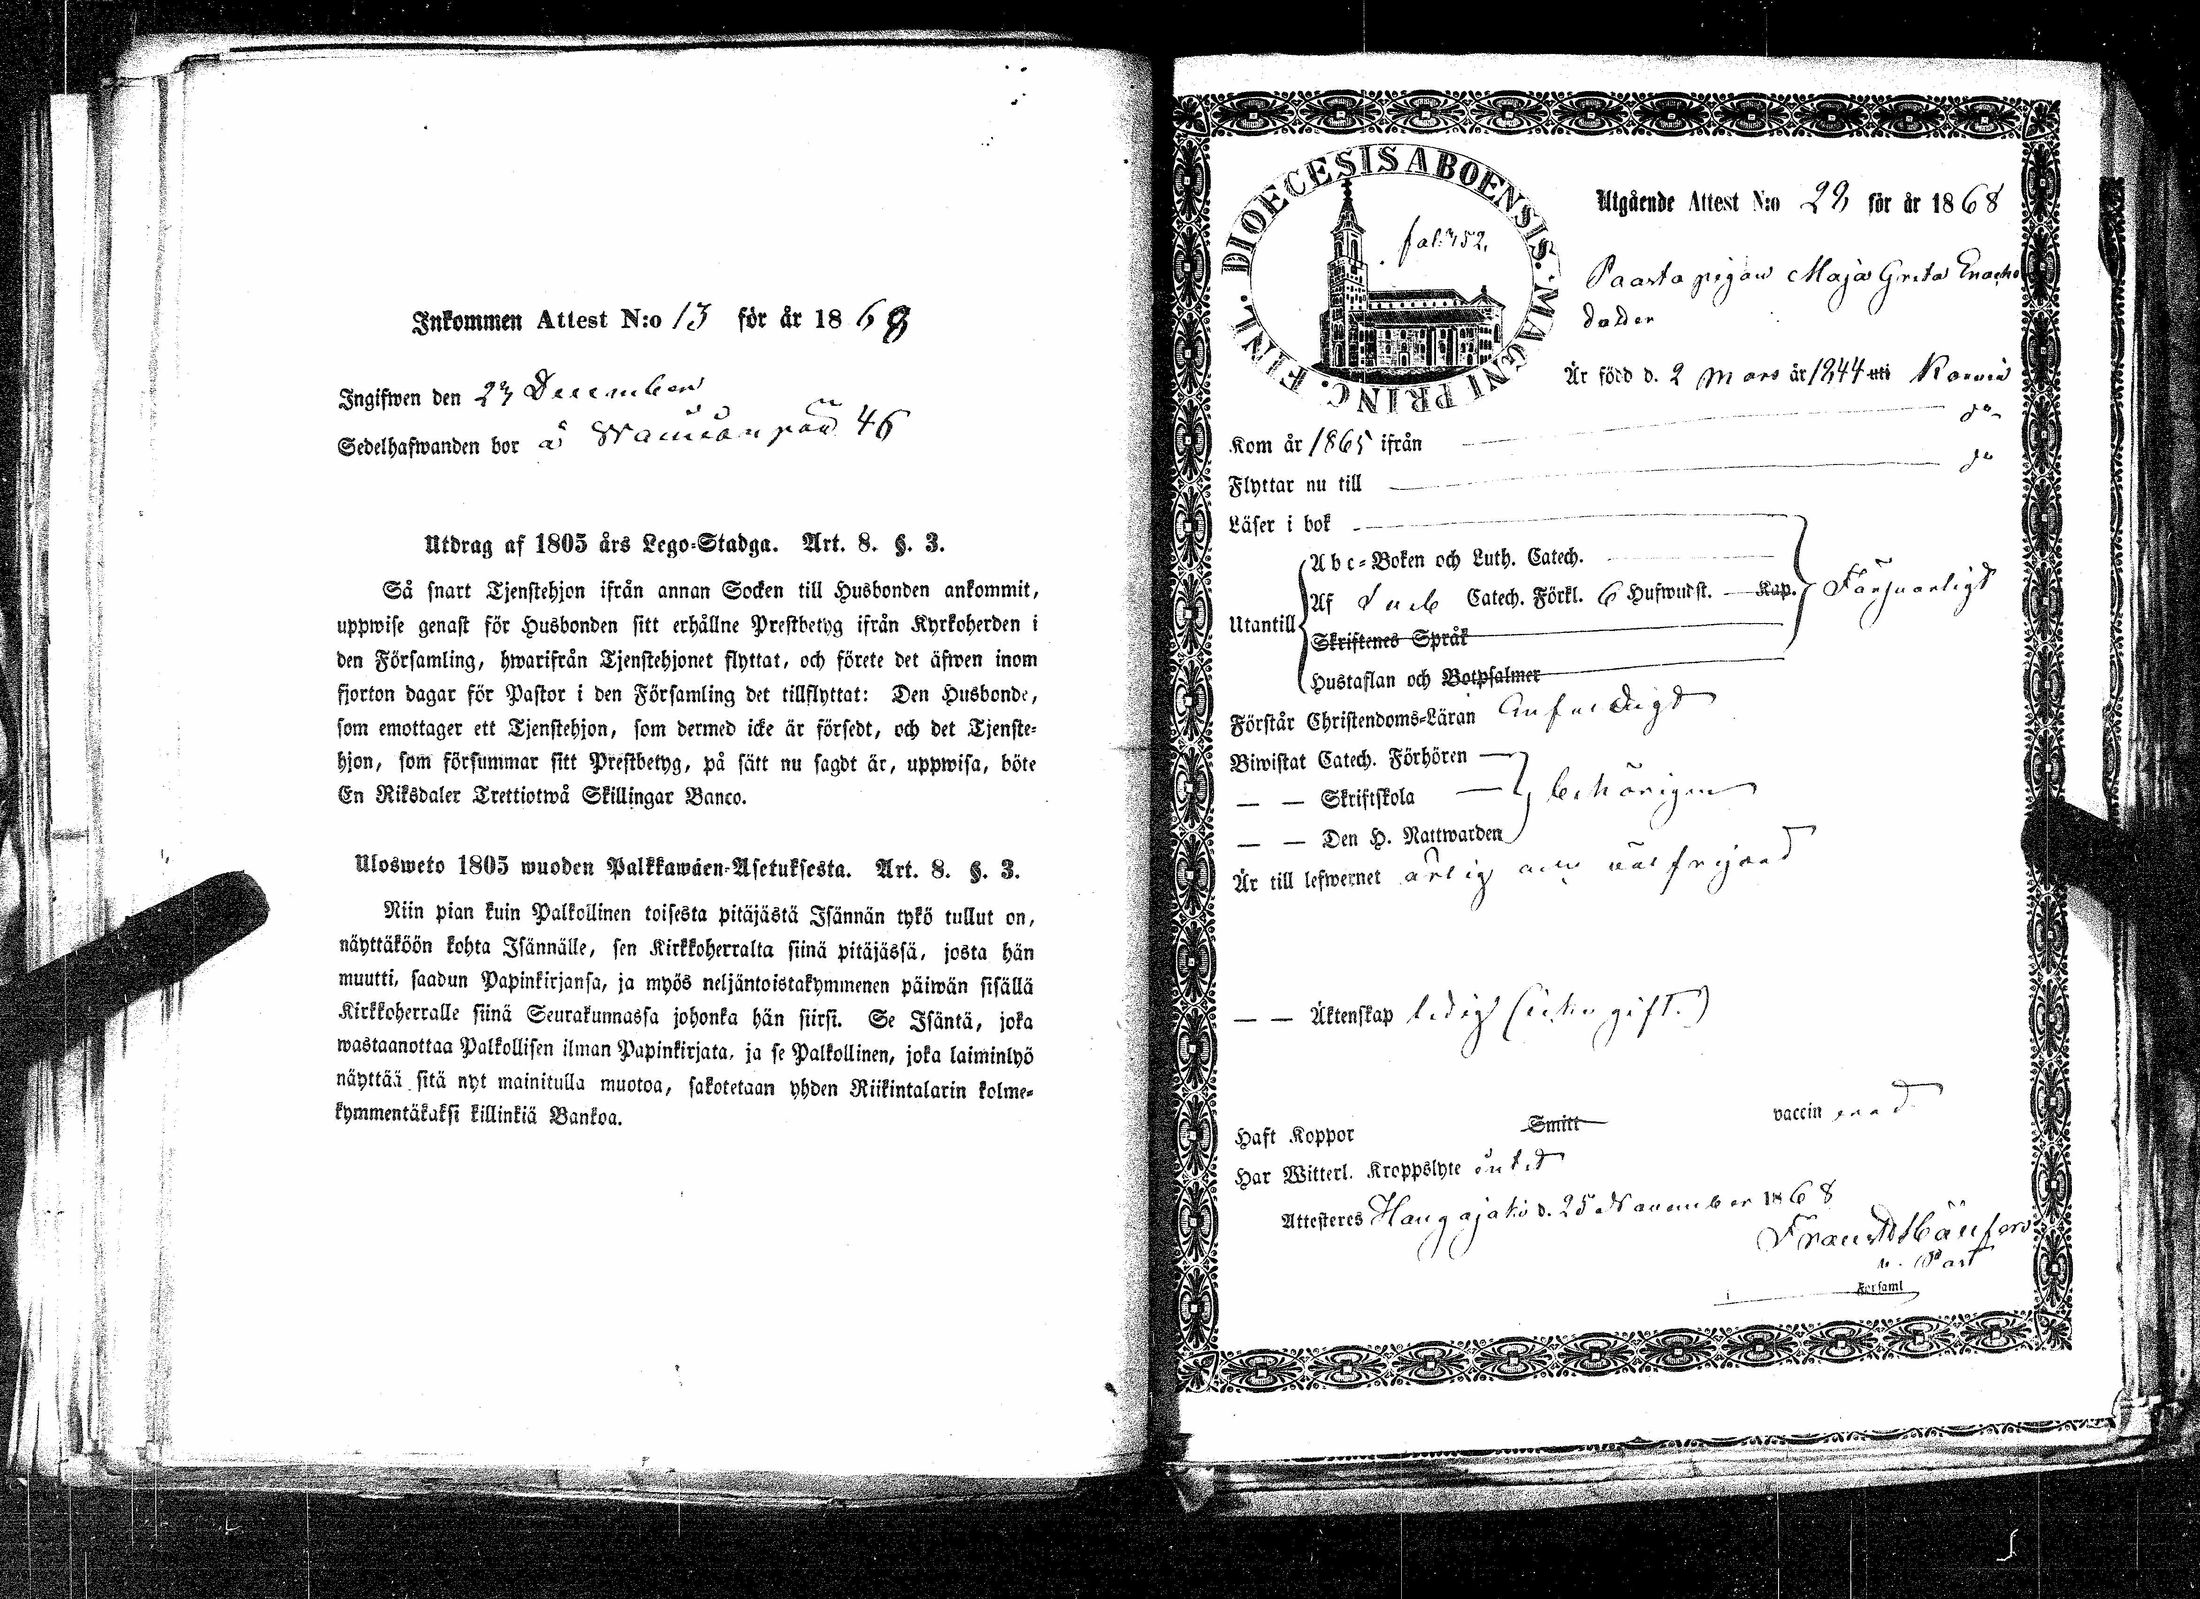 Inkommen Attest N:o 13 för år 1868
Ingifwen den 23 December
Sedelhafwanden bor å 46
Utdrag af 1805 års Lego-Stadga. Art. 8. §. 3.
Så snart Tjenstehjon ifrån annan Socken till Husbonden ankommit,
uppwise genast för Husbonden sitt erhållne Prestbetyg ifrån Kyrkoherden i
den Församling, hwarifrån Tjenstehjonet flyttat, och förete det äfwen inom
fjorton dagar för Pastor i den Församling det tillflyttat: Den Husbonde,
som emottager ett Tjenstehjon, som dermed icke är försedt, och det Tjenste-
hjon, som försummar sitt Prestbetyg, på sätt nu sagdt är, uppwisa, böte
En Riksdaler Trettiotwå Skillingar Banco.
Ulosweto 1805 wuoden Palkkawäen-Asetuksesta. Art. 8. §. 3.
Niin pian kuin Palkollinen toisesta pitäjästä Isännän tykö tullut on,
näyttäköön kohta Isännälle, sen Kirkkoherralta siinä pitäjässä, josta hän
muutti, saadun Papinkirjansa, ja myös neljäntoistakymmenen päiwän sisällä
Kirkkoherralle siinä Seurakunnassa johonka hän siirsi. Se Isäntä, joka
wastaanottaa Palkollisen ilman Papinkirjata, ja se Palkollinen, joka laiminlyö
näyttää sitä nyt mainitulla muotoa, sakotetaan yhden Riikintalarin kolme-
kymmentäkaksi killinkiä Bankoa.
DIOECESIS ABOENSIS. MAGNI PRINC. FINL.
fol. 752.
Utgående Attest N:o 22 för år 1868
pigan Maja Greta Enochs
dotter
Är född d. 2 Mars år 1844 uti Karvia
Kom år 1865 ifrån do
Flyttar nu till do
Läser i bok
Abc-Boken och Luth. Catech.
Utantill Af Catech. Förkl. 6 Hufwudst. Kap. Försvarligt
Skriftenes Språk
Hustaflan och Botpsalmer
Förstår Christendoms-Läran Enfaldigt
Biwistat Catech. Förhören
— — Skriftskola behörigen
— — Den H. Nattwarden
Är till lefwernet ärlig och välfrejdad
— — Äktenskap ledig (icke gift.)
Haft Koppor Smitt vaccinerad
Har Witterl. Kroppslyte intet
Attesteres d. 25 November 1868
Past
i Forsaml